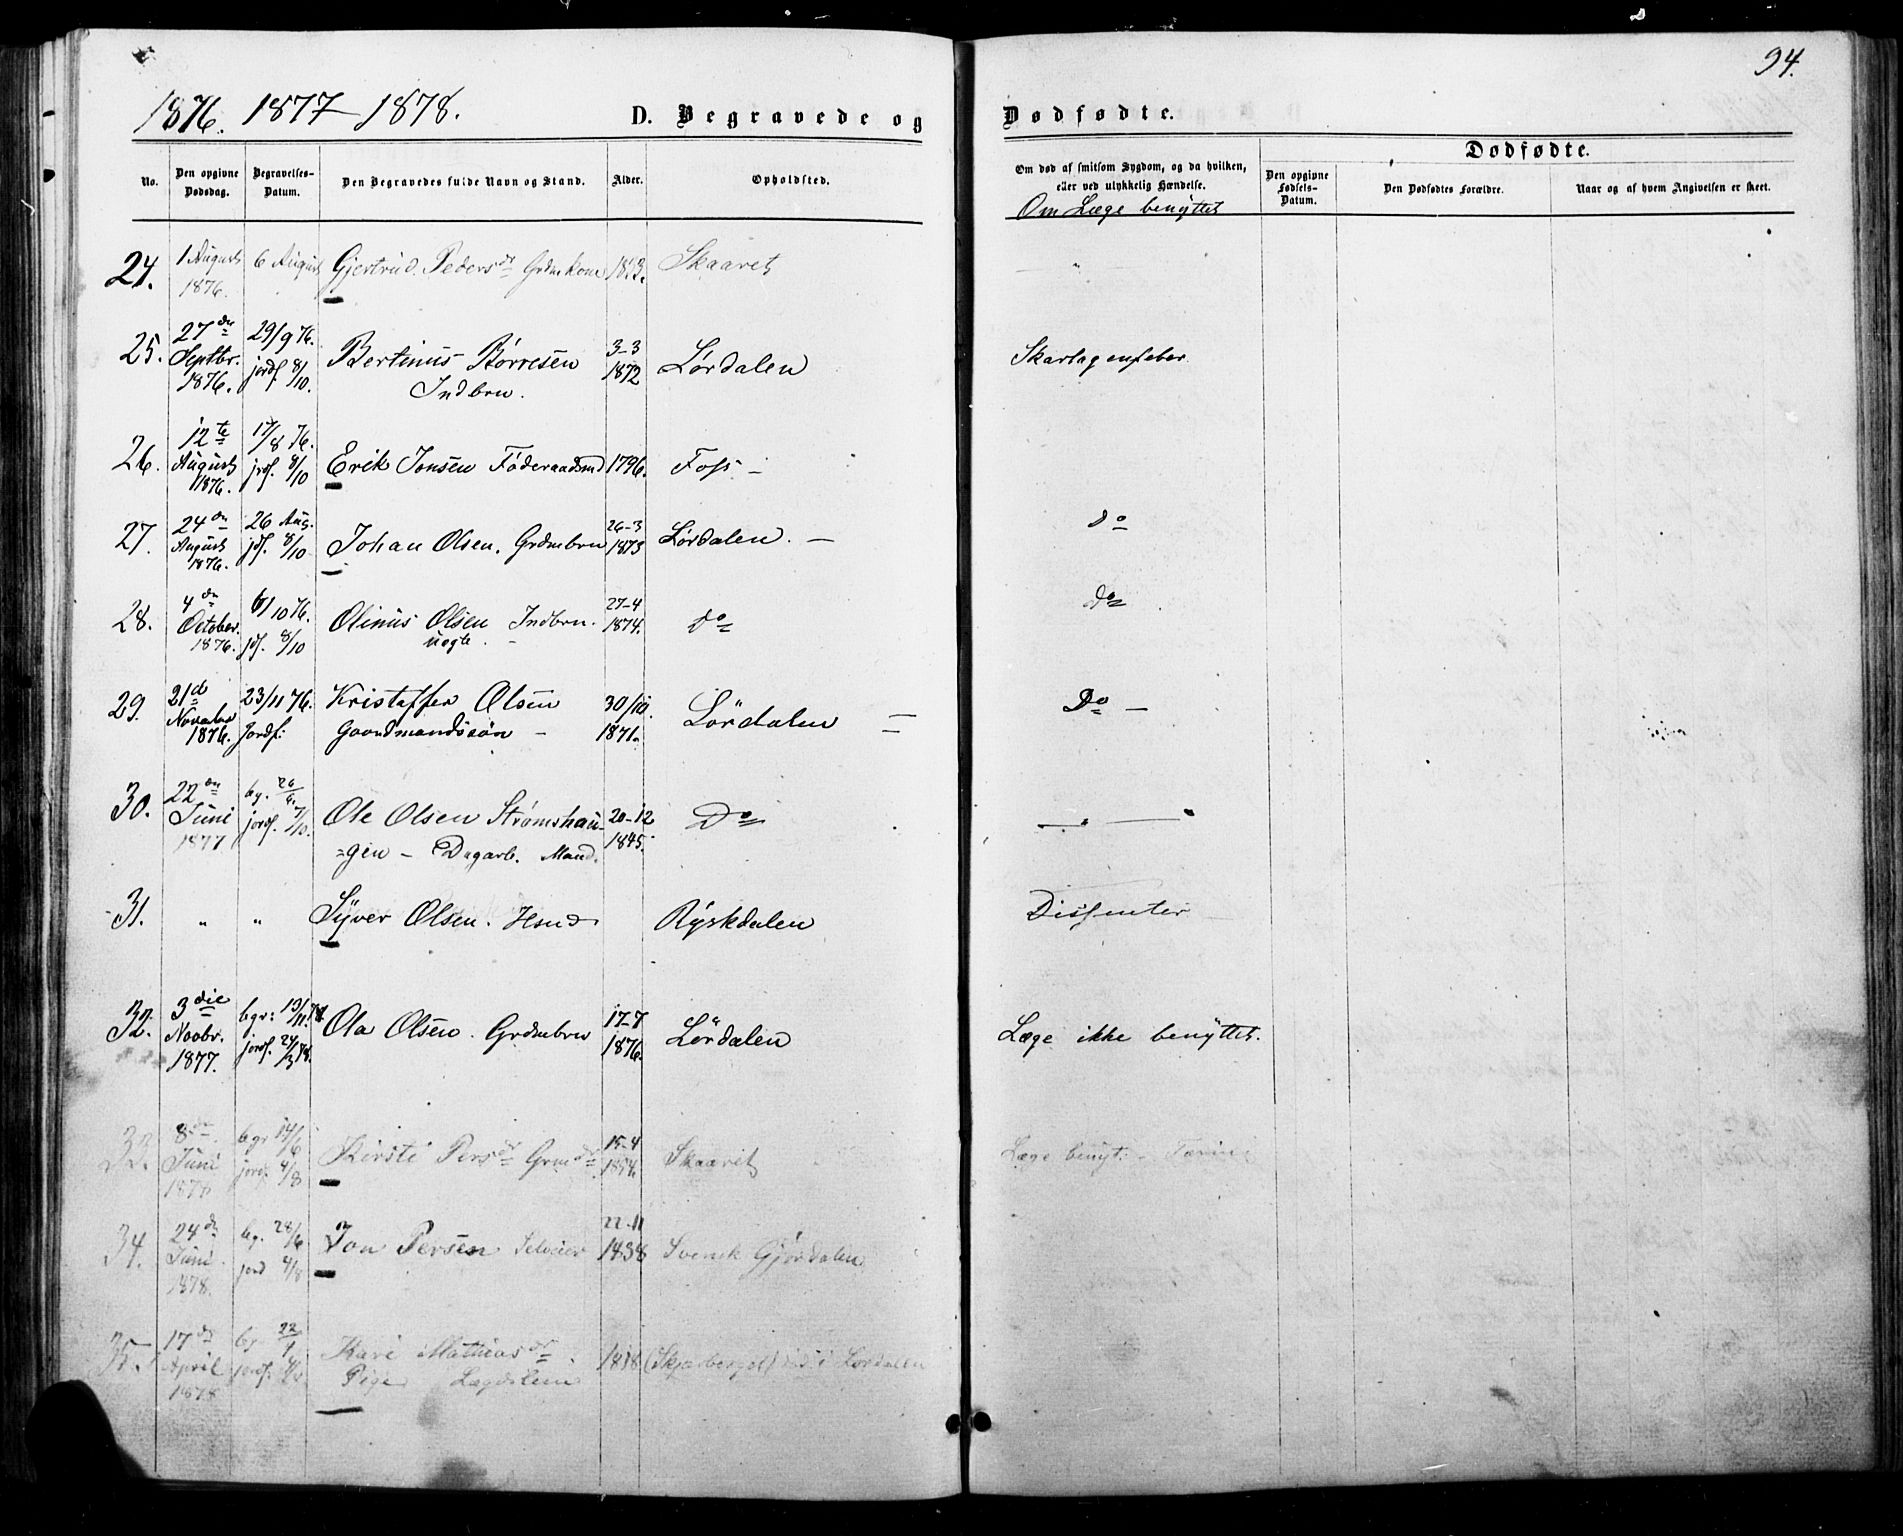 94.
1876. 1877 – 1878.
D. Begravede og Dødfødte.
No.
Den opgivne Dødsdag.
Begravelses-Datum.
Den Begravedes fulde Navn og Stand.
Alder.
Opholdsted.
Om død af smitsom Sygdom, og da hvilken,
eller ved ulykkelig Hændelse.
Om Læge benyttet
Dødfødte.
Den opgivne Fødsels-Datum.
Den Dødfødtes Forældre.
Naar og af hvem Angivelsen er skeet.
24. 1 August 6 August Gjertrud Pedersdr Grdmkone Skaaret "
1876.
25. 27de 29/9 76. 3-3
Septbr. jordf. 8/10. Bertinus Børresen 1872 Lørdalen Skarlagensfeber
1876. Indbrn.
26. 12te 17/8 76.
August jrdf. 8/10 Erik Jonsen Føderaadsmd 1796. Foss –
1876.
27. 24de 26 Aug. 26-3 Do
August jdf. 8/10 Johan Olsen. Grdmbrn 1873 Lørdalen. –
1876.
28. 4de /10 76. 27-4 Do
October Olinus Olsen Indbrn. 1874. Do
1876. jdf. 8/10 uægte.
29. 21d 23/11 76. Kristoffer Olsen 30/10. Lørdalen = Do –
Novembr
1876. Jordf: Gaardmandssøn – 1871.
30. 22de bg. 26/6. 20-12
Juni jordf. 7/10. Ole Olsen Strømshau- Do –"–
1877 =gen – Dagarb. Mand. 1845.
31. " " Syver Olsen. Hsmd Ryskdalen Dissenter
32. 3die begr: 13/11 17-7
Novbr. Ola Olsen. Grdmbrn 1876. Lørdalen Læge ikke benyttet.
1877. jordf. 24/3 78.
33. 8de begr 14/6 15-4
Juni jord. 4/8 Kirsti Persdr Grmdr 1854. Skaaret Læge benyt. – Tæring
1878
34. 24de beg. 28/6 22-11
Juni jord 4/8 Jon Persen Selveier 1838 Svensk Gjørdalen
1878.
35. 17de bg 22/4
April jordf. Kari Mathiasdr 1818 (Skjærberget) død i Lørdalen
1878 Pige Lægdslem